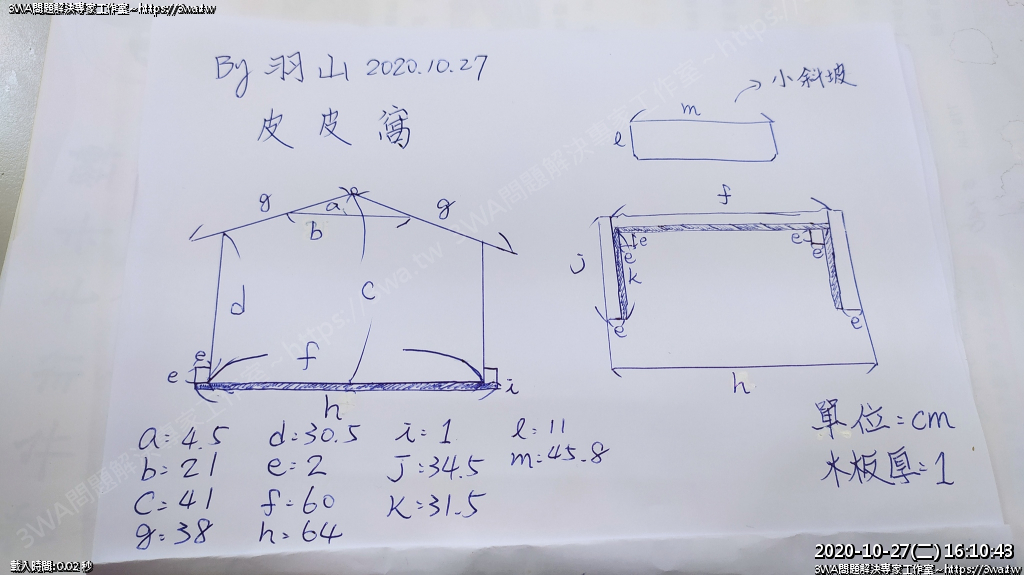 3WA問題解決專家工作室~https://3wa.tw
By 羽山 2020.10.27
皮皮窩
小斜坡
m
l
g
a
g
b
d
c
e
f
e
h
i
f
e
e
e
e
j
k
e
e
h
a=4.5 d=30.5 i=1 l=11
b=21 e=2 j=34.5 m=45.8
c=41 f=60 k=31.5
g=38 h=64
單位=cm
木板厚=1
載入時間:0.02 秒
2020-10-27(二) 16:10:43
3WA問題解決專家工作室~https://3wa.tw